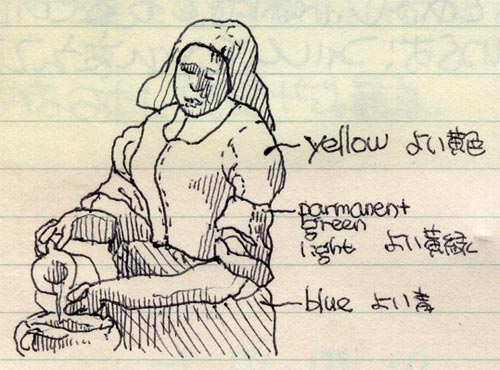 yellow よい黄色
parmanent
green
light よい黄緑
blue よい青